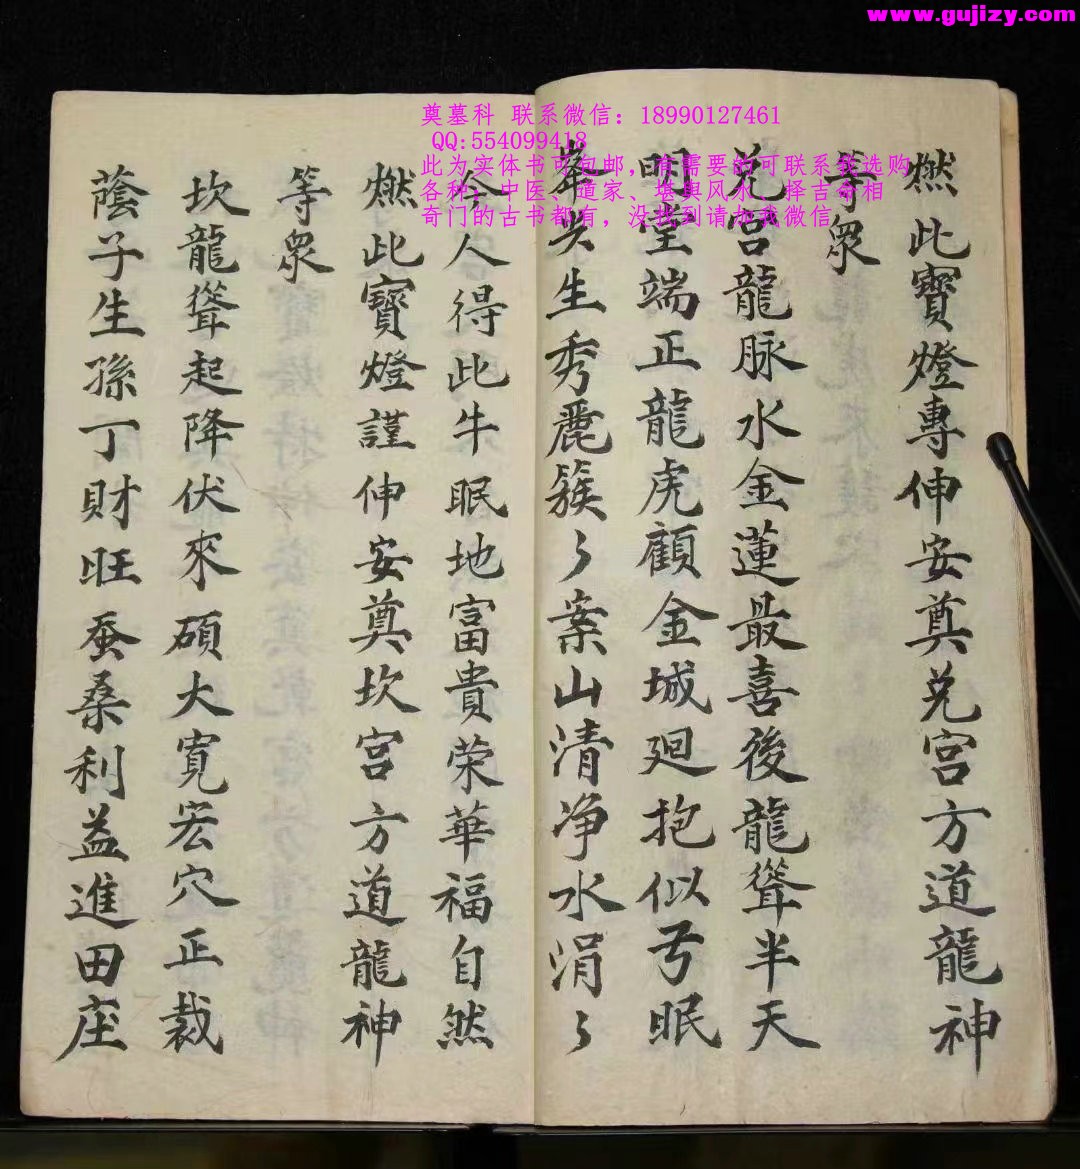 www.gujizy.com
奠墓科 联系微信：18990127461
QQ:554099418
此为实体书可包邮，有需要的可联系我选购
各种：中医、道家、堪舆风水、择吉命相
奇门的古书都有，没找到请加我微信
燃此寶燈專伸安奠兑宮方道龍神
等眾
兑宮龍脉水金蓮最喜後龍聳半天
明堂端正龍虎顧金城廻抱似弓眠
峯尖生秀麗簇々案山清净水涓々
今人得此牛眠地富貴荣華福自然
燃此寶燈謹伸安奠坎宮方道龍神
等眾
坎龍聳起降伏來碩大寬宏穴正裁
蔭子生孫丁財旺蚕桑利益進田庄